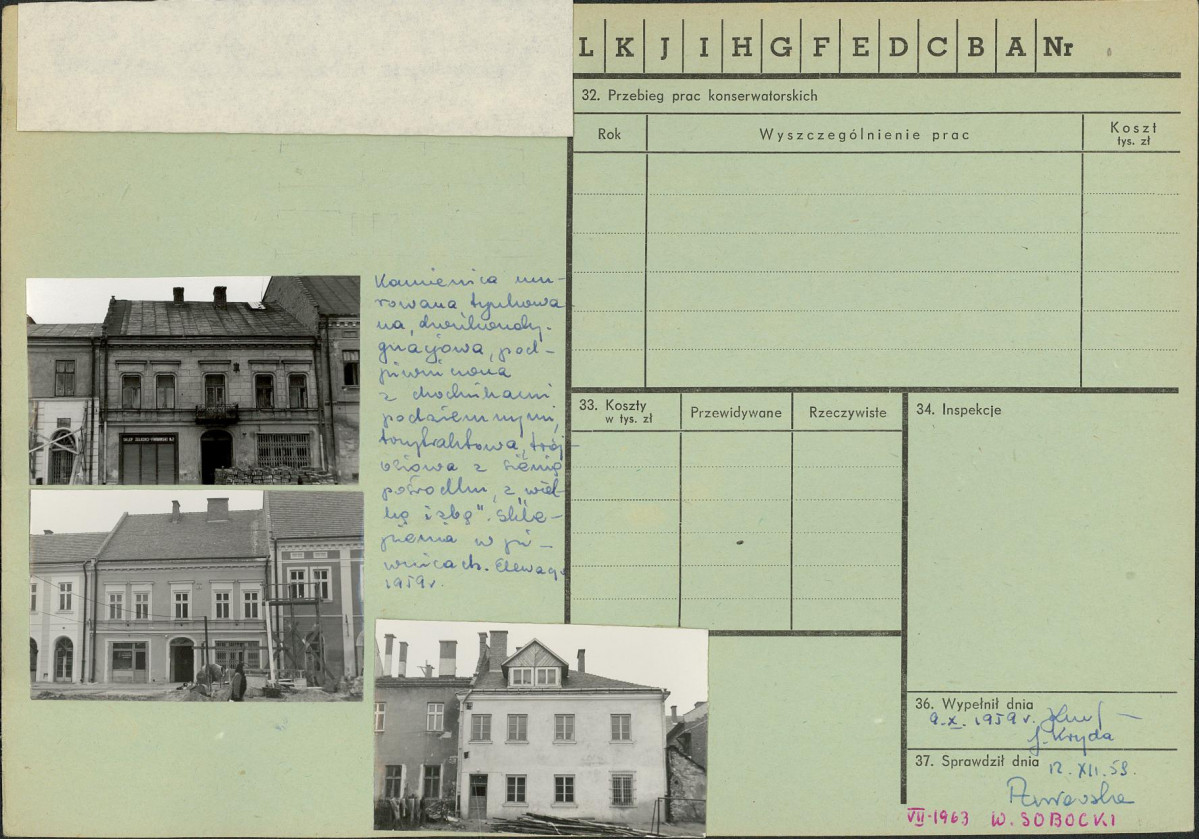 L K J I H G F E D C B A Nr
32. Przebieg prac konserwatorskich
Rok Wyszczególnienie prac Koszt
tys. zł
Kamienica mu-
rowana tynkowa
na, dwukondy-
gnacjowa, pod-
piwniczona
z chodnikami
podziemnymi,
trój-
osiowa z sienią
pośrodku, z "wiel-
ką izbą". Skle-
pienia w piw-
nicach. Elewacja
1959 r.
33. Koszty
w tys. zł
Przewidywane Rzeczywiste
34. Inspekcje
36. Wypełnił dnia
9.X.1959 r.
J. Kryda
37. Sprawdził dnia 12.XII.59.
VII-1963 W. SOBOCKI